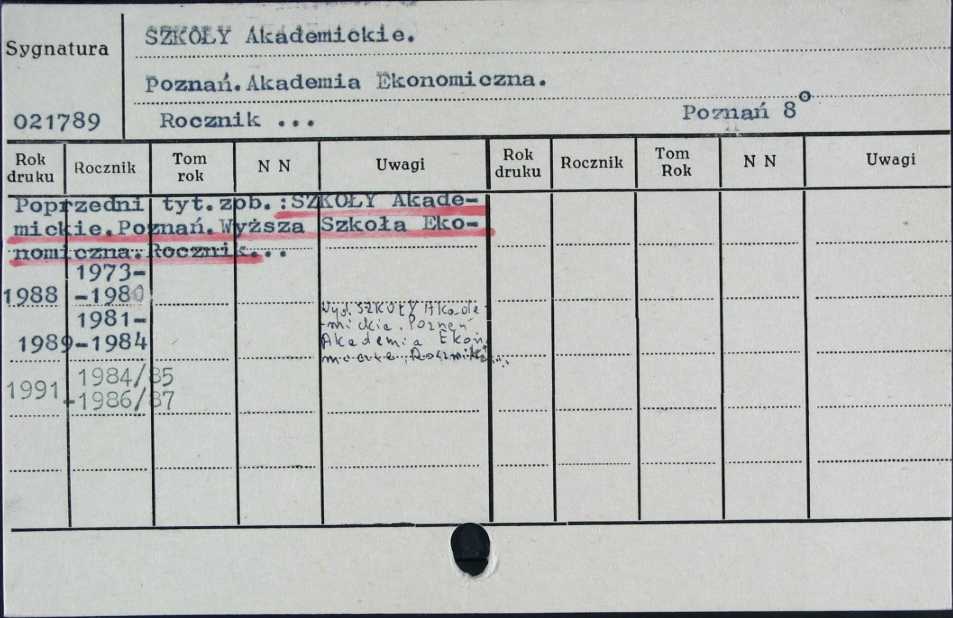 Sygnatura
SZKOŁY Akademickie.
Poznań.Akademia Ekonomiczna.
021789
Rocznik ...
Poznań 8°
Rok druku Rocznik Tom rok N N Uwagi Rok druku Rocznik Tom Rok N N Uwagi
Poprzedni tyt.zob.:SZKOŁY Akade-
mickie.Poznań.Wyższa Szkoła Eko-
nomiczna.Rocznik...
1973-
1988 -1980
1981-
1989-1984
SZKOŁY Akade-
mickie. Poznań
Akademia Ekon
1984/85
1991 -1986/87